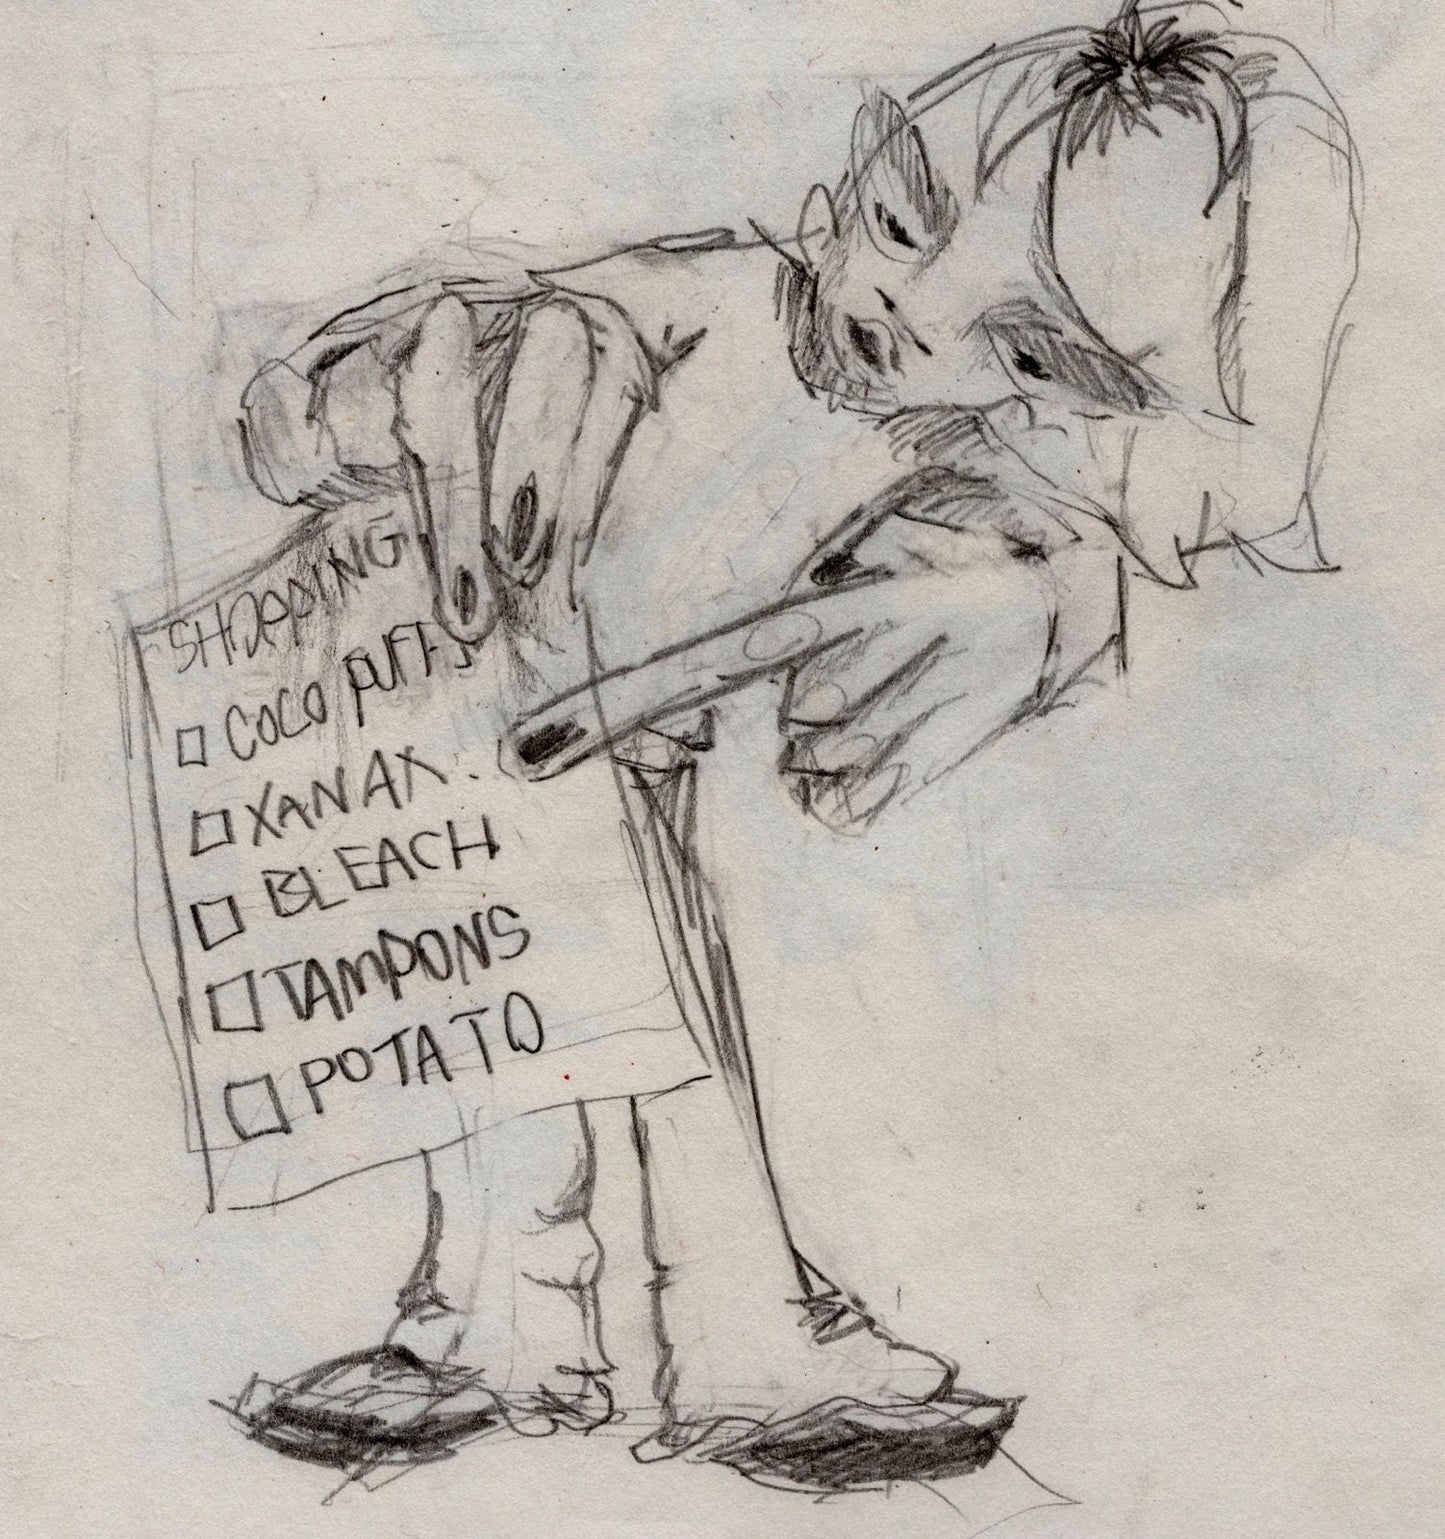 SHOPPING
COCO PUFFS
XANAX
BLEACH
TAMPONS
POTATO